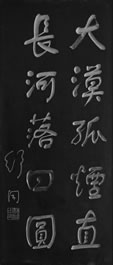 大漠孤煙直
長河落日圓
舒同